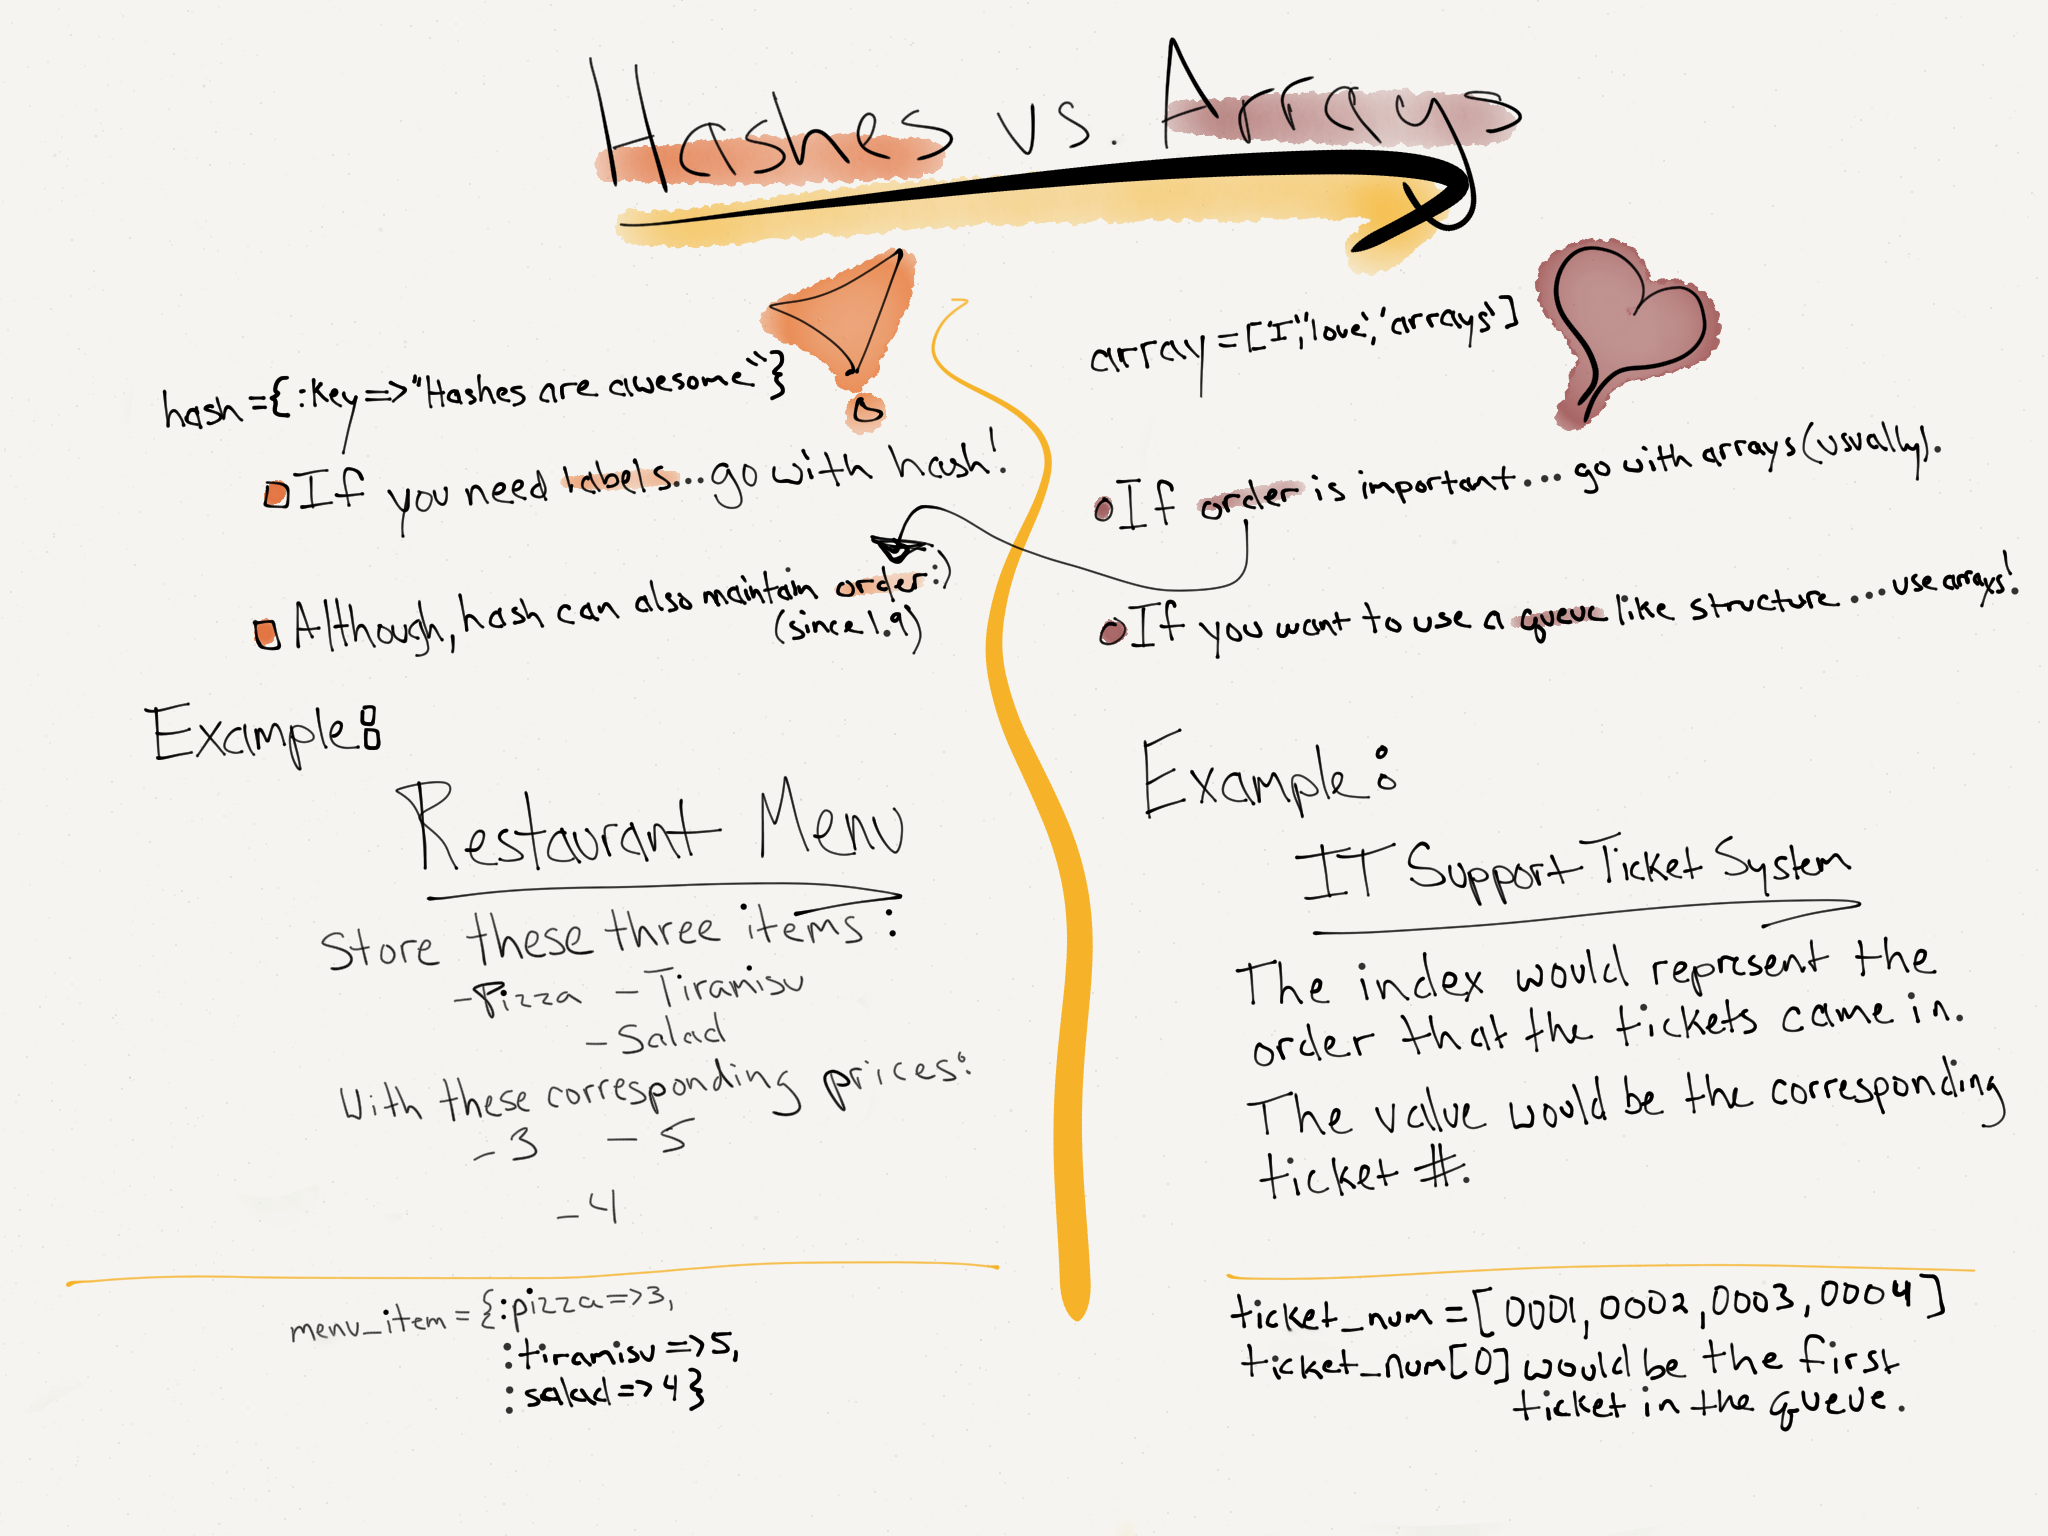 Hashes vs. Arrays
hash={:key=>"Hashes are awesome"}
If you need labels...go with hash!
Although, hash can also maintain order:)
(since 1.9)
Example:
Restaurant Menu
Store these three items:
-Pizza -Tiramisu
-Salad
With these corresponding prices:
-3 -5
-4
menu_item={:pizza=>3,
:tiramisu=>5,
:salad=>4}
array=['I','love','arrays']
If order is important... go with arrays (usually).
If you want to use a queue like structure...use arrays!
Example:
IT Support Ticket System
The index would represent the
order that the tickets came in.
The value would be the corresponding
ticket #.
ticket_num=[0001,0002,0003,0004]
ticket_num[0] would be the first
ticket in the queue.